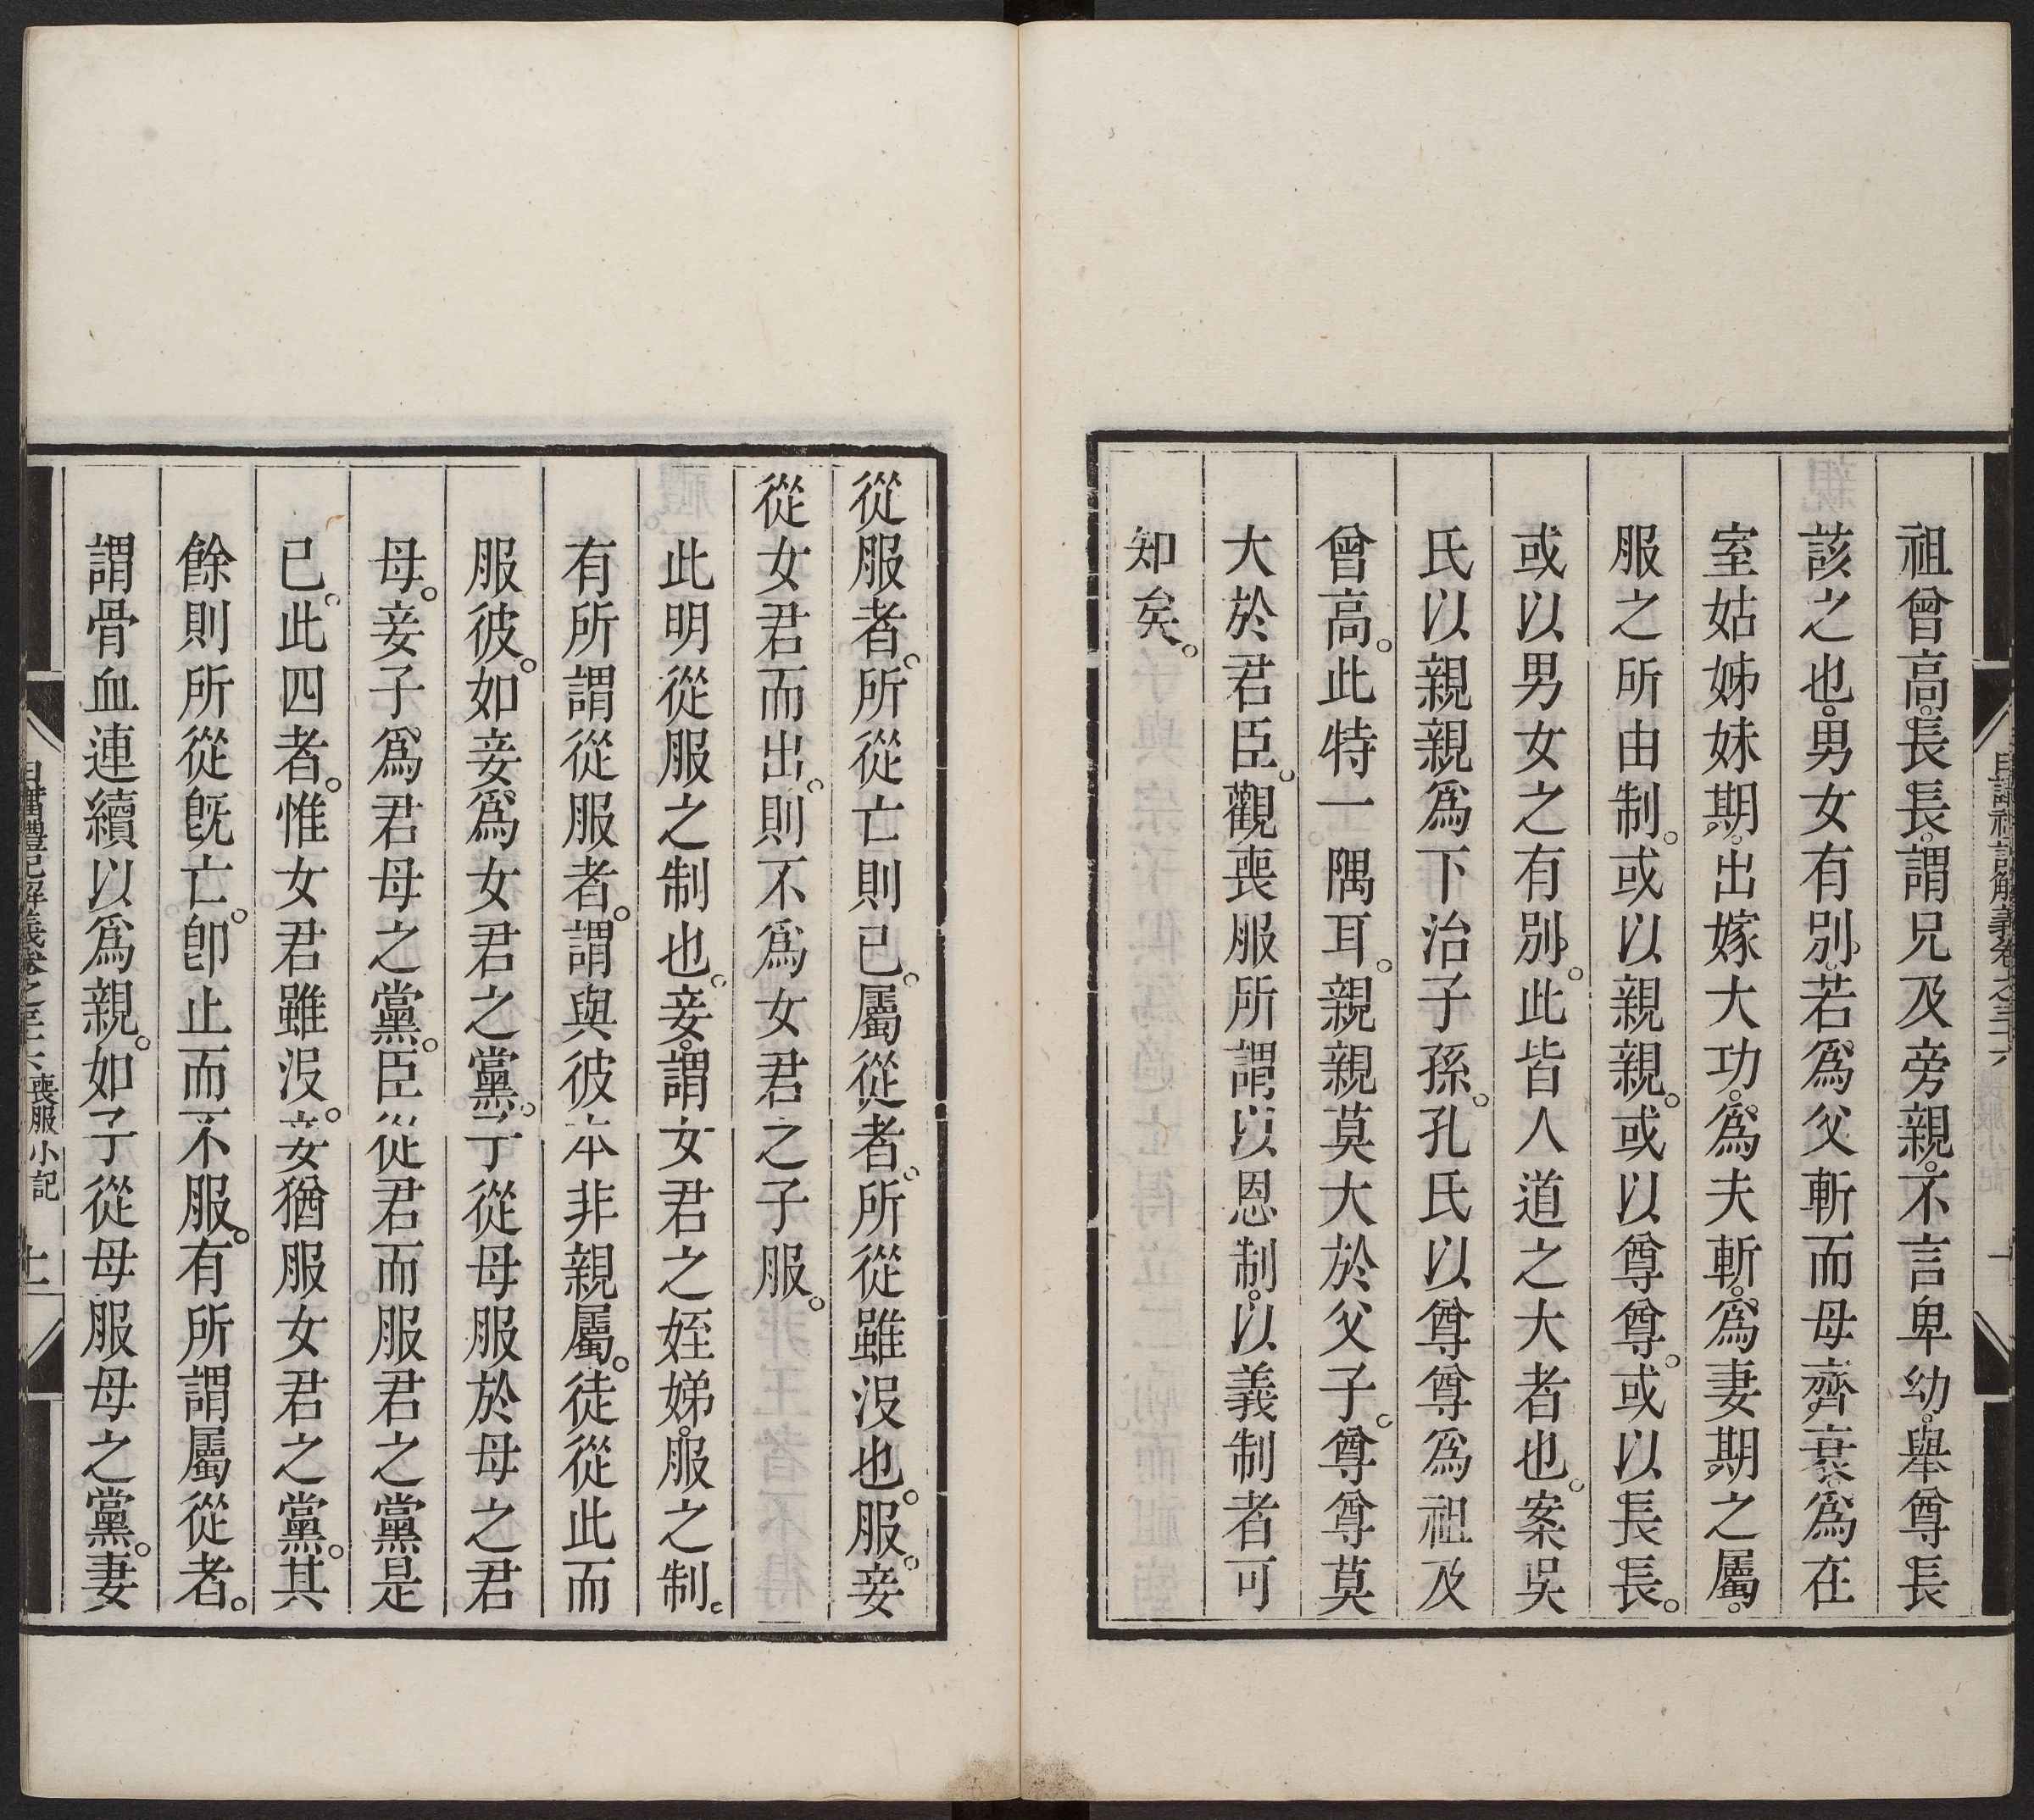 祖曾高。長長。謂兄及旁親。不言卑幼。舉尊長
該之也。男女有別。若爲父斬而母齊衰。爲在
室姑姊妹期。出嫁大功。爲夫斬。爲妻期之屬。
服之所由制。或以親親。或以尊尊。或以長長。
或以男女之有別。此皆人道之大者也。案吳
氏以親親爲下治子孫。孔氏以尊尊爲祖及
曾高。此特一隅耳。親親莫大於父子。尊尊莫
大於君臣。觀喪服所謂以恩制。以義制者可
知矣。
從服者。所從亡則已。屬從者。所從雖沒也。服。妾
從女君而出。則不爲女君之子服。
此明從服之制也。妾。謂女君之姪娣。服之制。
有所謂從服者。謂與彼本非親屬。徒從此而
服彼。如妾爲女君之黨。子從母服於母之君
母。妾子爲君母之黨。臣從君而服君之黨是
已。此四者。惟女君雖沒。妾猶服女君之黨。其
餘則所從既亡。卽止而不服。有所謂屬從者。
謂骨血連續以爲親。如子從母服母之黨。妻
日講禮記解義卷之三十六 喪服小記 十一